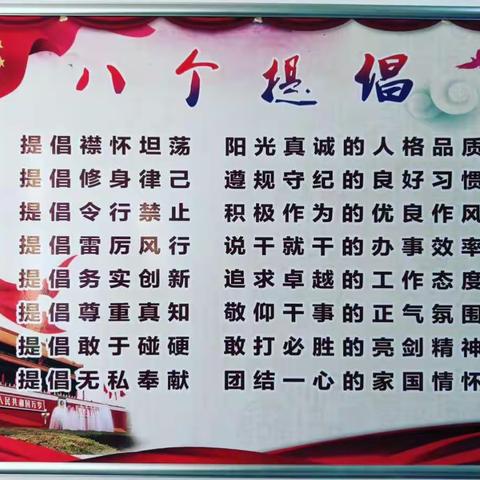 八个提倡
提倡襟怀坦荡 阳光真诚的人格品质
提倡修身律己 遵规守纪的良好习惯
提倡令行禁止 积极作为的优良作风
提倡雷厉风行 说干就干的办事效率
提倡务实创新 追求卓越的工作态度
提倡尊重真知 敬仰干事的正气氛围
提倡敢于碰硬 敢打必胜的亮剑精神
提倡无私奉献 团结一心的家国情怀
人民共和国万岁